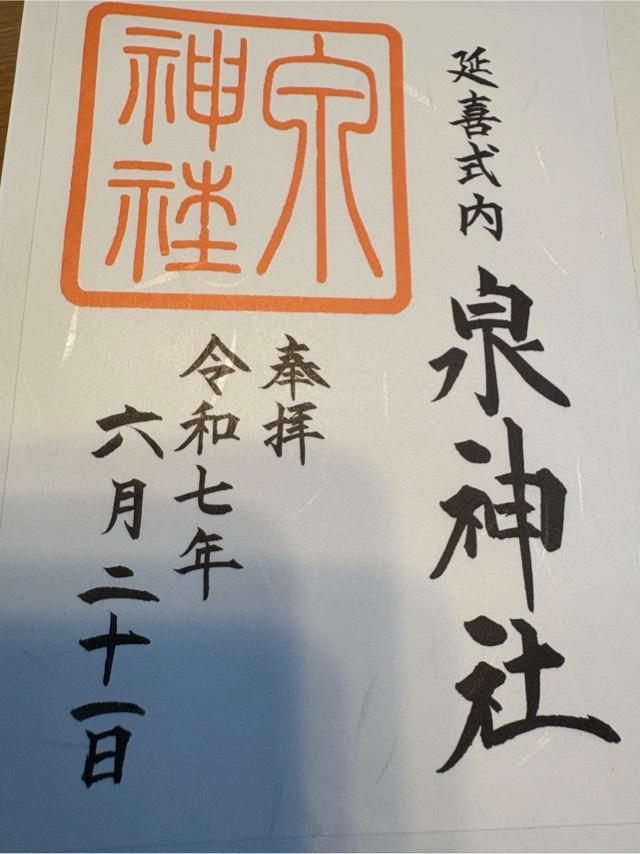 延喜式内
泉神社
奉拝
令和七年
六月二十一日
泉
神社